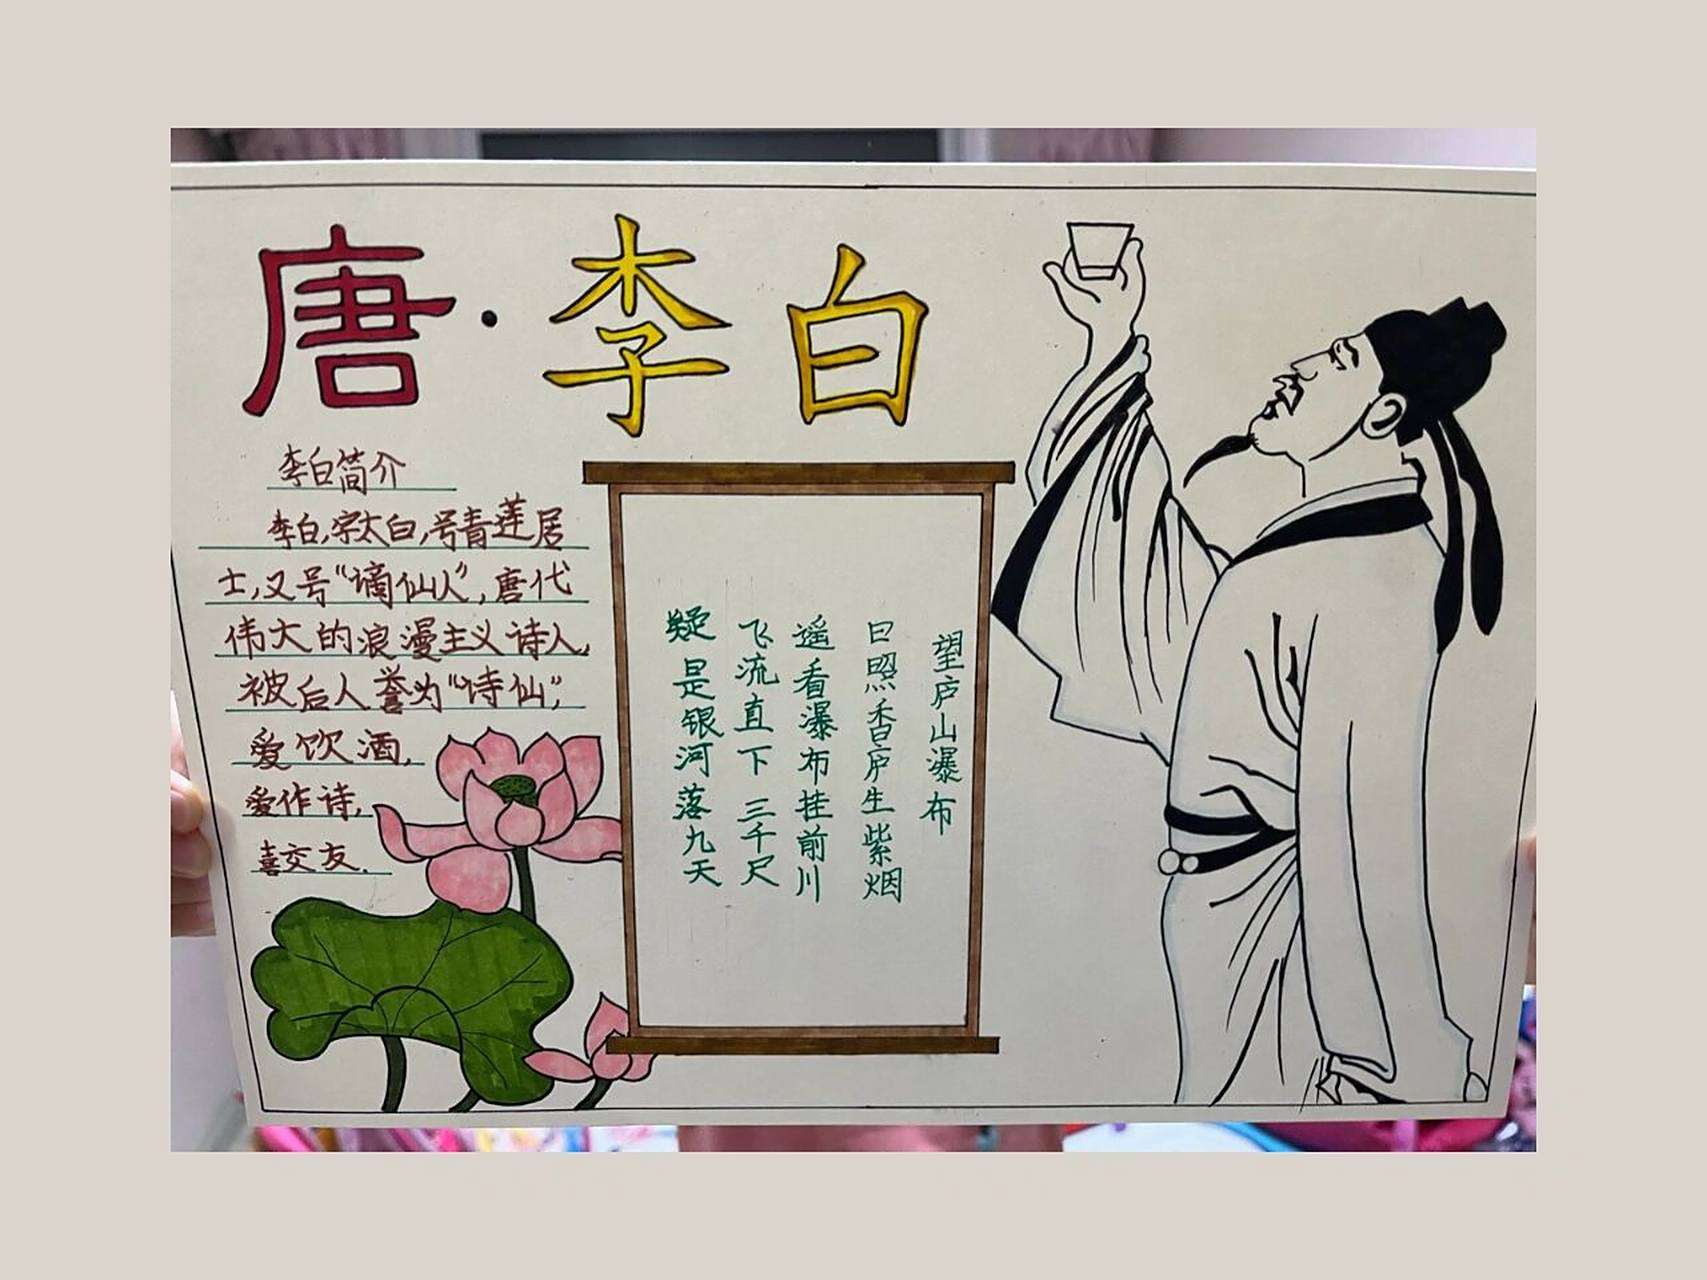 唐·李白
李白简介
李白,字太白,号青莲居
士,又号“谪仙人”,唐代
伟大的浪漫主义诗人,
被后人誉为“诗仙”,
爱饮酒,
爱作诗,
喜交友.
望庐山瀑布
日照香庐生紫烟
遥看瀑布挂前川
飞流直下三千尺
疑是银河落九天